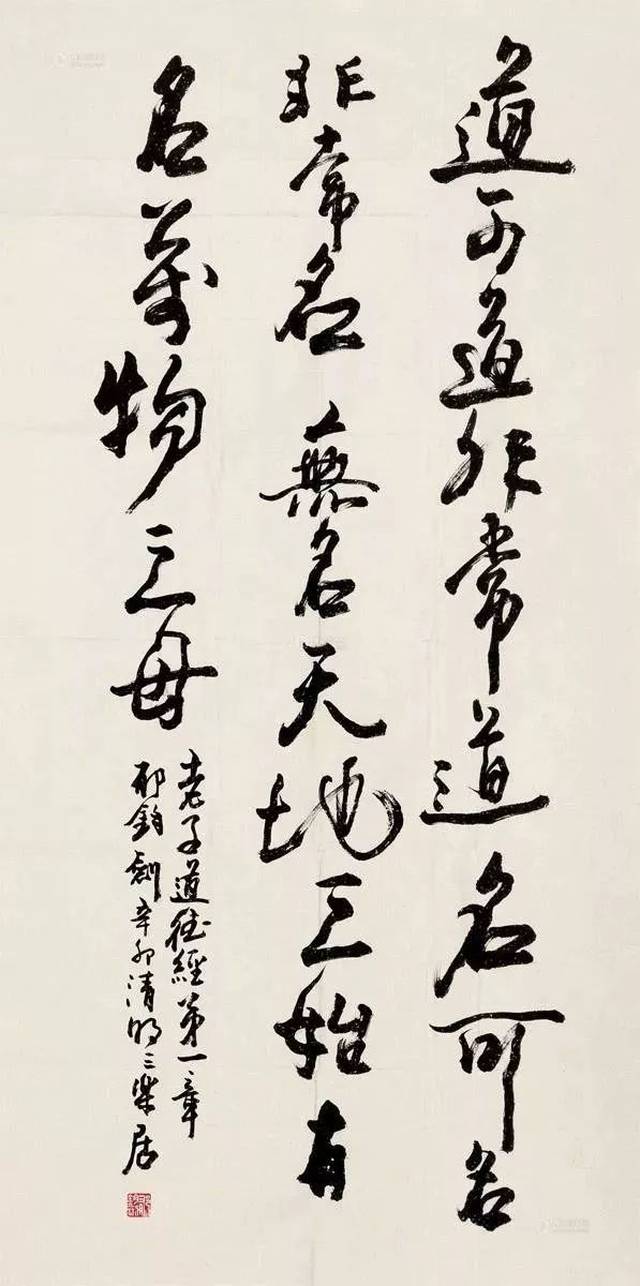 道可道非常道名可名
非常名無名天地之始有
名萬物之母
老子道德經第一章
郁鈞劍辛卯清明三樂居